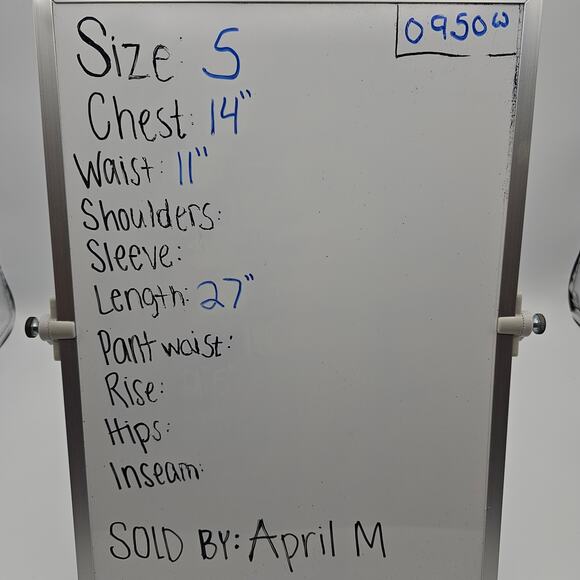 0950W
Size: S
Chest: 14"
Waist: 11"
Shoulders:
Sleeve:
Length: 27"
Pant waist:
Rise:
Hips:
Inseam:
SOLD BY: April M